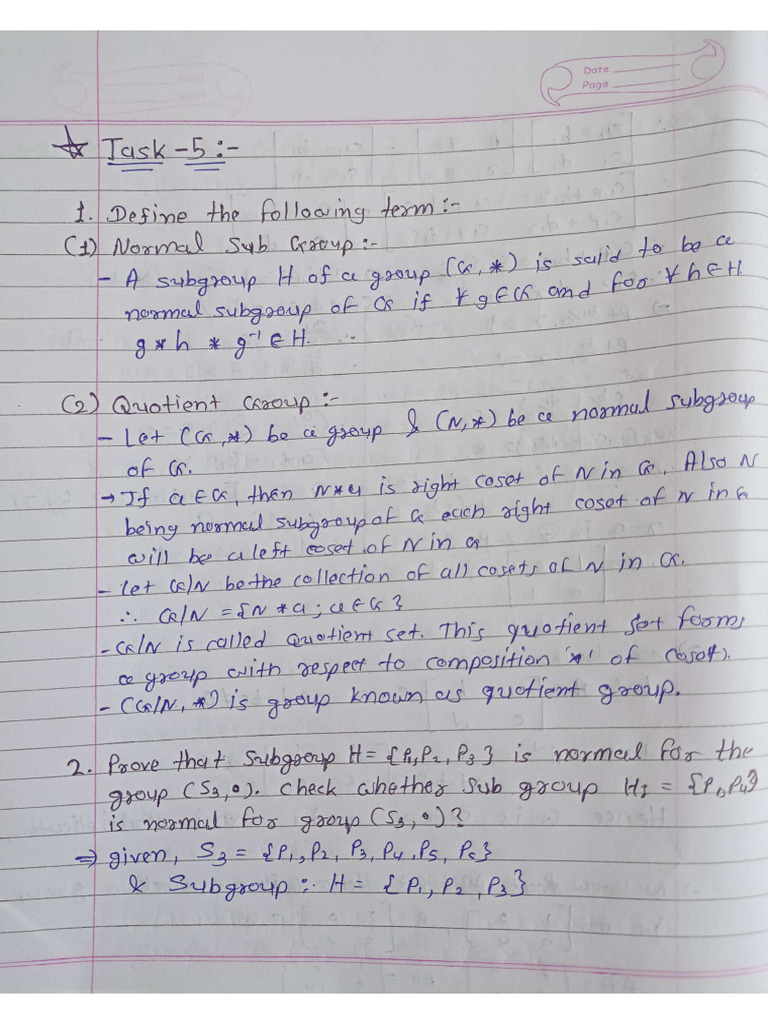 Date
Page
☆ Task-5:-
1. Define the following term:-
(1) Normal Sub Group:-
- A subgroup H of a group (G, *) is said to be a
normal subgroup of G if ∀ g ∈ G and for ∀ h ∈ H
g * h * g⁻¹ ∈ H.
(2) Quotient Group:-
- Let (G, *) be a group & (N, *) be a normal subgroup
of G.
→ If a ∈ G, then N * a is right coset of N in G. Also N
being normal subgroup of G each right coset of N in G
will be a left coset of N in G
- Let G/N be the collection of all cosets of N in G.
∴ G/N = {N * a ; a ∈ G}
- G/N is called Quotient set. This quotient set forms
a group with respect to composition '*' of coset).
- (G/N, *) is group known as quotient group.
2. Prove that Subgroup H = {P₁, P₂, P₃} is normal for the
group (S₃, ∘). Check whether sub group H₁ = {P₁, P₄}
is normal for group (S₃, ∘)?
⇒ given, S₃ = {P₁, P₂, P₃, P₄, P₅, P₆}
& Subgroup:- H = {P₁, P₂, P₃}